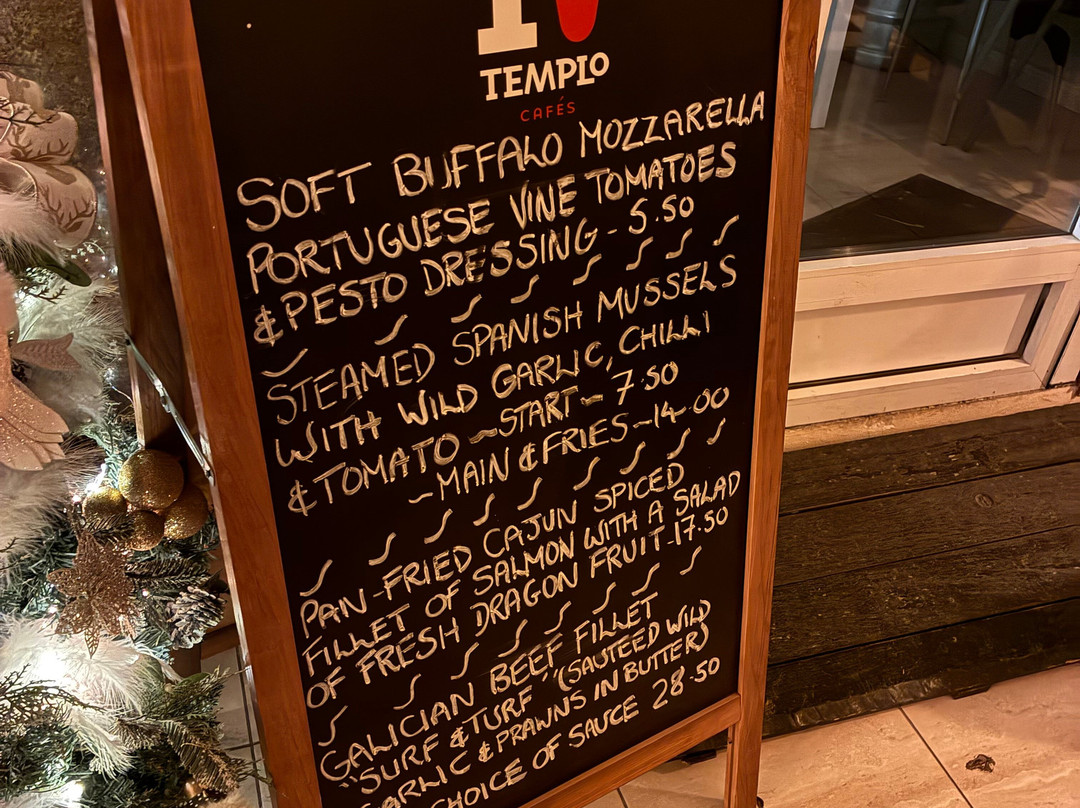 TEMPLO
CAFÉS
SOFT BUFFALO MOZZARELLA
PORTUGUESE VINE TOMATOES
& PESTO DRESSING - 5.50
STEAMED SPANISH MUSSELS
WITH WILD GARLIC, CHILLI
& TOMATO - START - 7.50
- MAIN & FRIES - 14.00
PAN-FRIED CAJUN SPICED
FILLET OF SALMON WITH A SALAD
OF FRESH DRAGON FRUIT - 17.50
GALICIAN BEEF FILLET
"SURF & TURF" (SAUTEED WILD
GARLIC & PRAWNS IN BUTTER)
CHOICE OF SAUCE 28.50